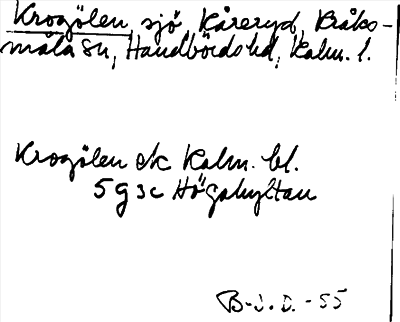 Krogölen, sjö, Kåreryd, Kråks-
måla sn, Handbörds hd, Kalm. l.
Krogölen ek Kalm. bl.
5 g sc Högahyltan
B-J.D. -55